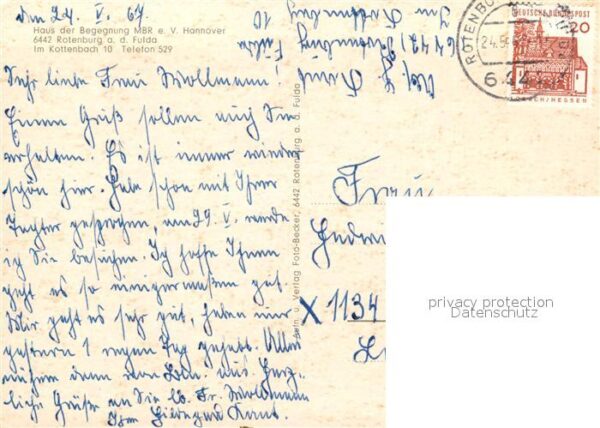 den 24. V. 67
Haus der Begegnung MBR e. V. Hannover
6442 Rotenburg a. d. Fulda
Im Kottenbach 10 Telefon 529
Sehr liebe Frau Wollmann!
Einen Gruß sollen auch Sie
erhalten. Es ist immer wieder
schön hier. Habe schon mit Ihrer
Tochter gesprochen, am 29. V. werde
ich Sie besuchen. Ich hoffe Ihnen
geht es so einigermaßen gut.
Mir geht es sehr gut, haben nur
gestern 1 regen Tag gehabt. Alles
Herz-
liche Grüße an Sie lb. Fr. Wollmann
Ihre Hildegard Kraus.
Abs.
6442 Rotenburg Fulda
Im Kottenbach 10
u. Verlag Foto-Becker, 6442 Rotenburg a. d. Fulda
DEUTSCHE BUNDESPOST
20
LORSCH/HESSEN
ROTENBU
24.5
Frau
Hedw
X 1134
privacy protection
Datenschutz